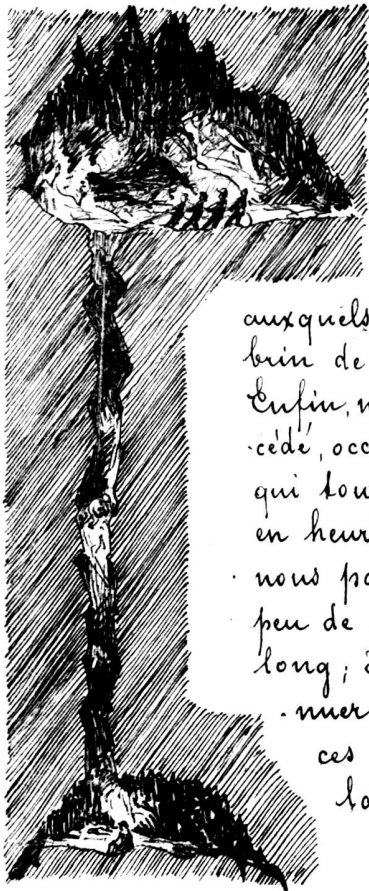 auxquels
brin de
Enfin, n
cédé, occ
qui tou
en heur
nous pa
peu de
long ;
nuer
ces
la